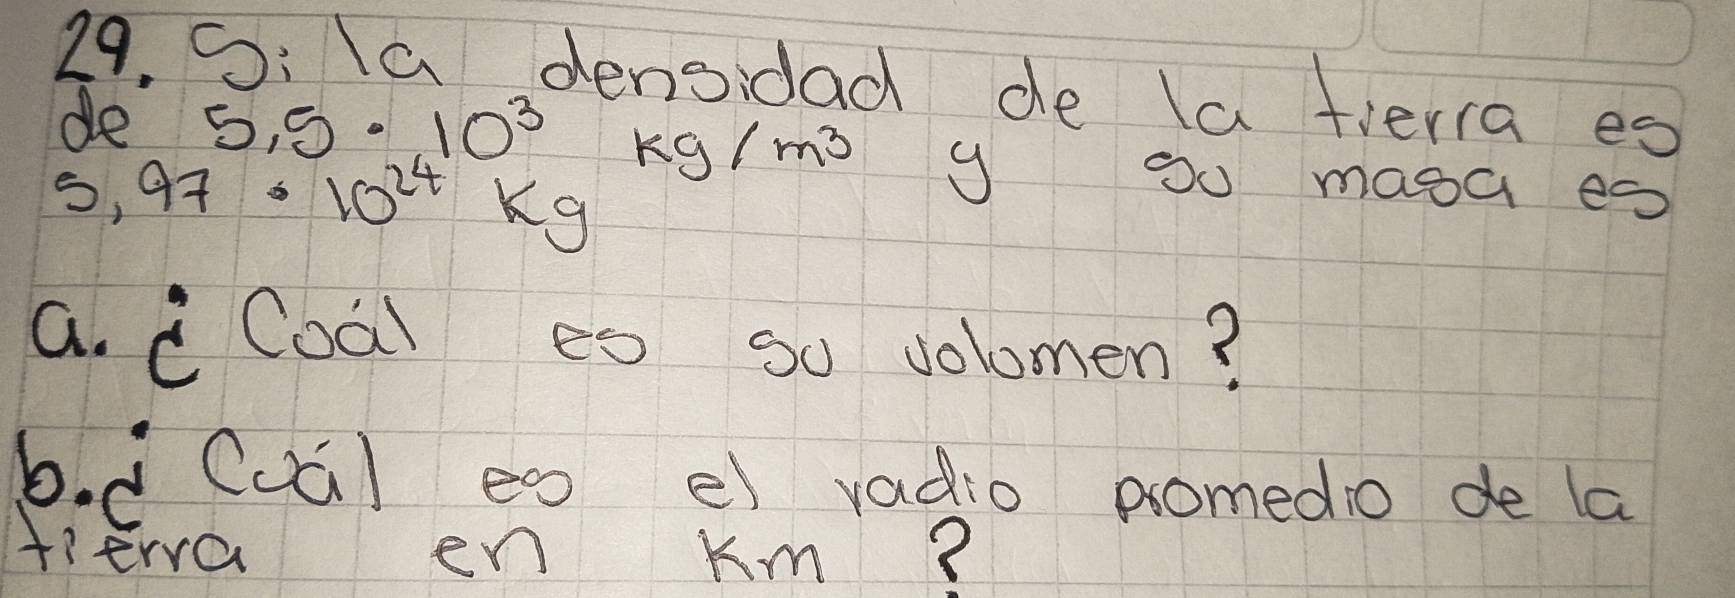 29. Si la densidad de la tierra es
de 5,5 · 10³ kg/m³ y su masa es
5,97 · 10²⁴ kg
a. ¿Cuál es su volumen?
b. ¿Cuál es el radio promedio de la
tierra en km?